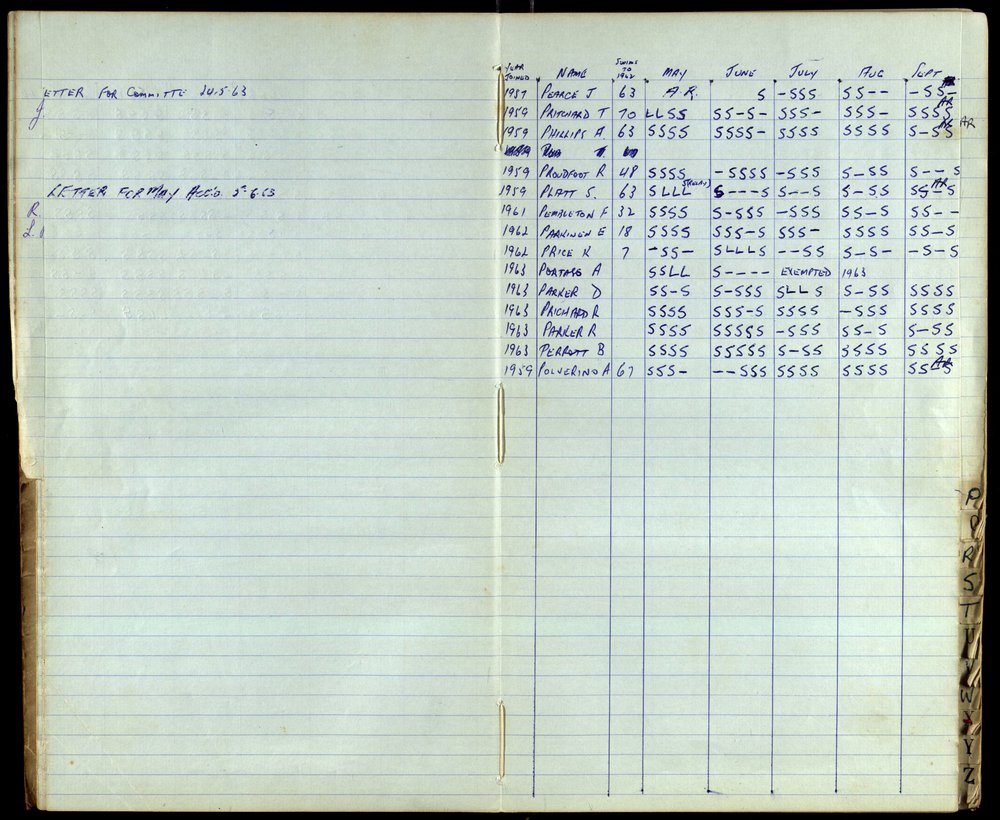 ETTER FOR COMMITTE 24.5.63
LETTER FOR MAY ACC'D. 5-6-63
R
YEAR JOINED NAME SWIMS TO 1962 MAY JUNE JULY AUG SEPT
1957 PEARCE J 63 A.R. S -SSS SS-- -SS-
1959 PRITCHARD T 70 LLSS SS-S- SSS- SSS- SSSS AR
1959 PHILLIPS A. 63 SSSS SSSS- SSSS SSSS S-SS AR AR
1959 PROUDFOOT R 48 SSSS -SSSS -SSS S-SS S--S
1959 PLATT S. 63 SLLL S---S S--S S-SS SS-S AR
1961 PEMBLETON F 32 SSSS S-SSS -SSS SS-S SS--
1962 PARKINEN E 18 SSSS SSS-S SSS- SSSS SS-S
1962 PRICE K 7 -SS- SLLLS --SS S-S- -S-S
1963 PORTASS A SSLL S---- EXEMPTED 1963
1963 PARKER D SS-S S-SSS SLLS S-SS SSSS
1963 PRICHARD R SSSS SSS-S SSSS -SSS SSSS
1963 PARKER R SSSS SSSSS -SSS SS-S S-SS
1963 PERROTT B SSSS SSSSS S-SS SSSS SSSS
1959 POLVERINO A 67 SSS- --SSS SSSS SSSS SSSS AR
P
P
R
S
T
U
V
W
X
Y
Z